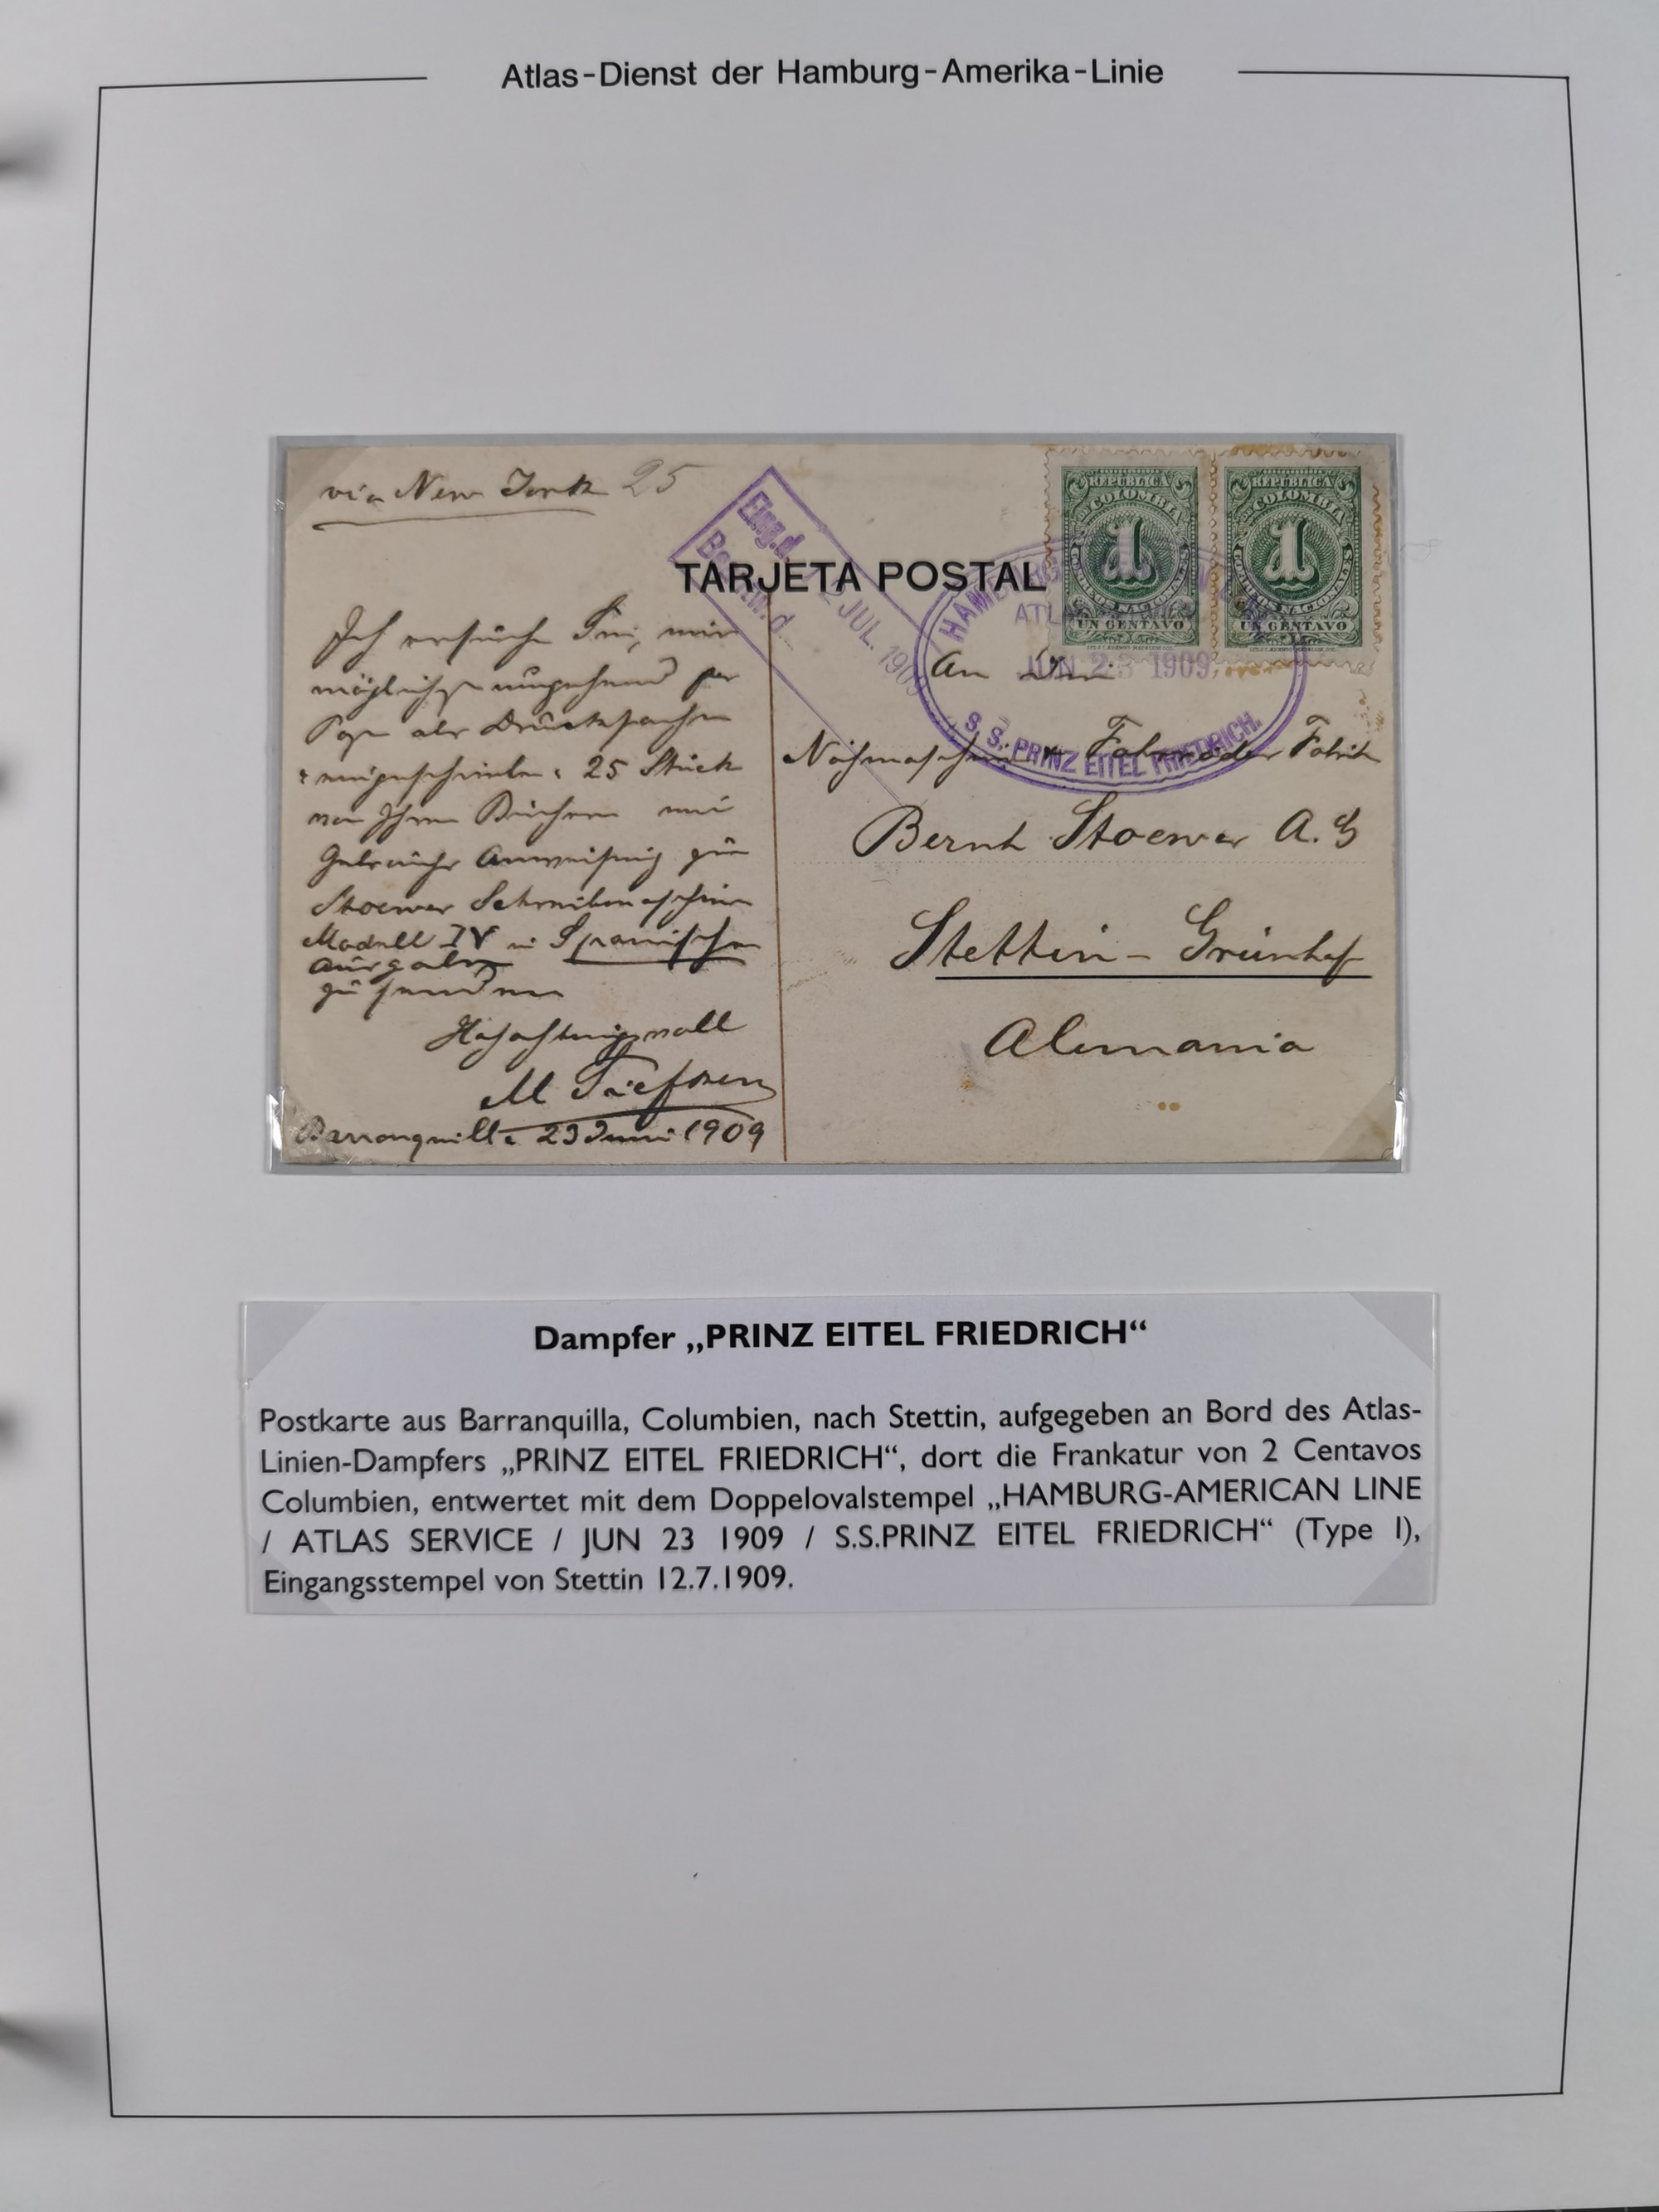 Atlas-Dienst der Hamburg-Amerika-Linie
via New York 25
Eing.d.
12 JUL. 1909
TARJETA POSTAL
REPUBLICA
DE COLOMBIA
1
CORREOS NACIONALES
UN CENTAVO
REPUBLICA
DE COLOMBIA
1
CORREOS NACIONALES
UN CENTAVO
HAMBURG-AMERICAN LINE
ATLAS SERVICE
JUN 23 1909
S.S. PRINZ EITEL FRIEDRICH.
Ich ersuche Sie, mir
möglichst umgehend per
Post als Drucksache
"eingeschrieben" 25 Stück
von Ihren Büchern mit
Gebrauchs Anweisung für
Stoewer Schreibmaschine
Modell IV in Spanischer
Ausgabe
zu senden
Hochachtungsvoll
M
Barranquilla 23 Juni 1909
An die
Nähmaschinen Fahrräder Fabrik
Bernh Stoewer A.G
Stettin - Grünhof
Alemania
Dampfer „PRINZ EITEL FRIEDRICH“
Postkarte aus Barranquilla, Columbien, nach Stettin, aufgegeben an Bord des Atlas-
Linien-Dampfers „PRINZ EITEL FRIEDRICH“, dort die Frankatur von 2 Centavos
Columbien, entwertet mit dem Doppelovalstempel „HAMBURG-AMERICAN LINE
/ ATLAS SERVICE / JUN 23 1909 / S.S.PRINZ EITEL FRIEDRICH“ (Type I),
Eingangsstempel von Stettin 12.7.1909.